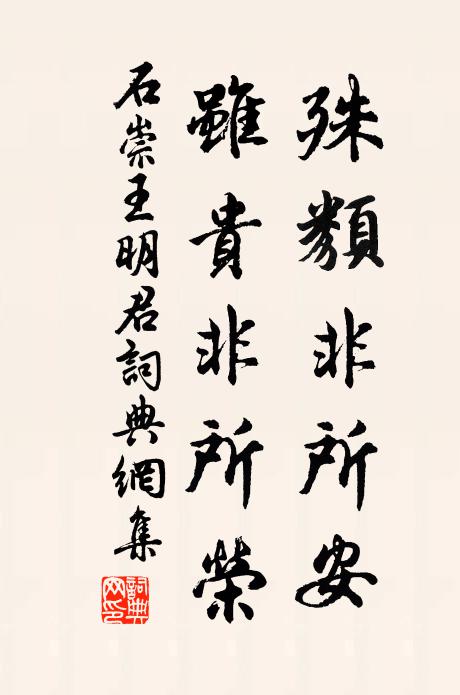 殊類非所安
雖貴非所榮
石崇王明君詞典網集
詞典網印